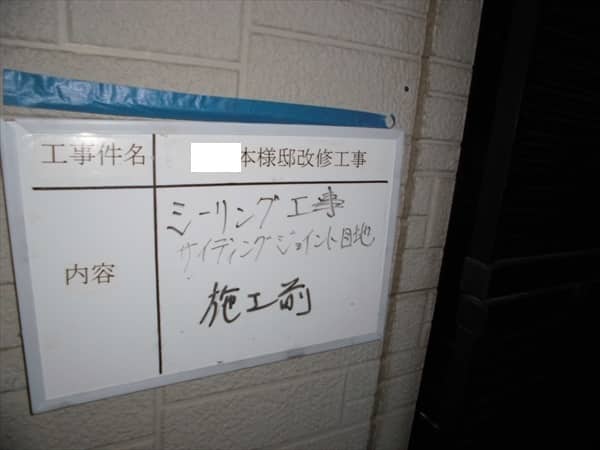 工事件名
本様邸改修工事
内容
シーリング工事
サイディングジョイント目地
施工前